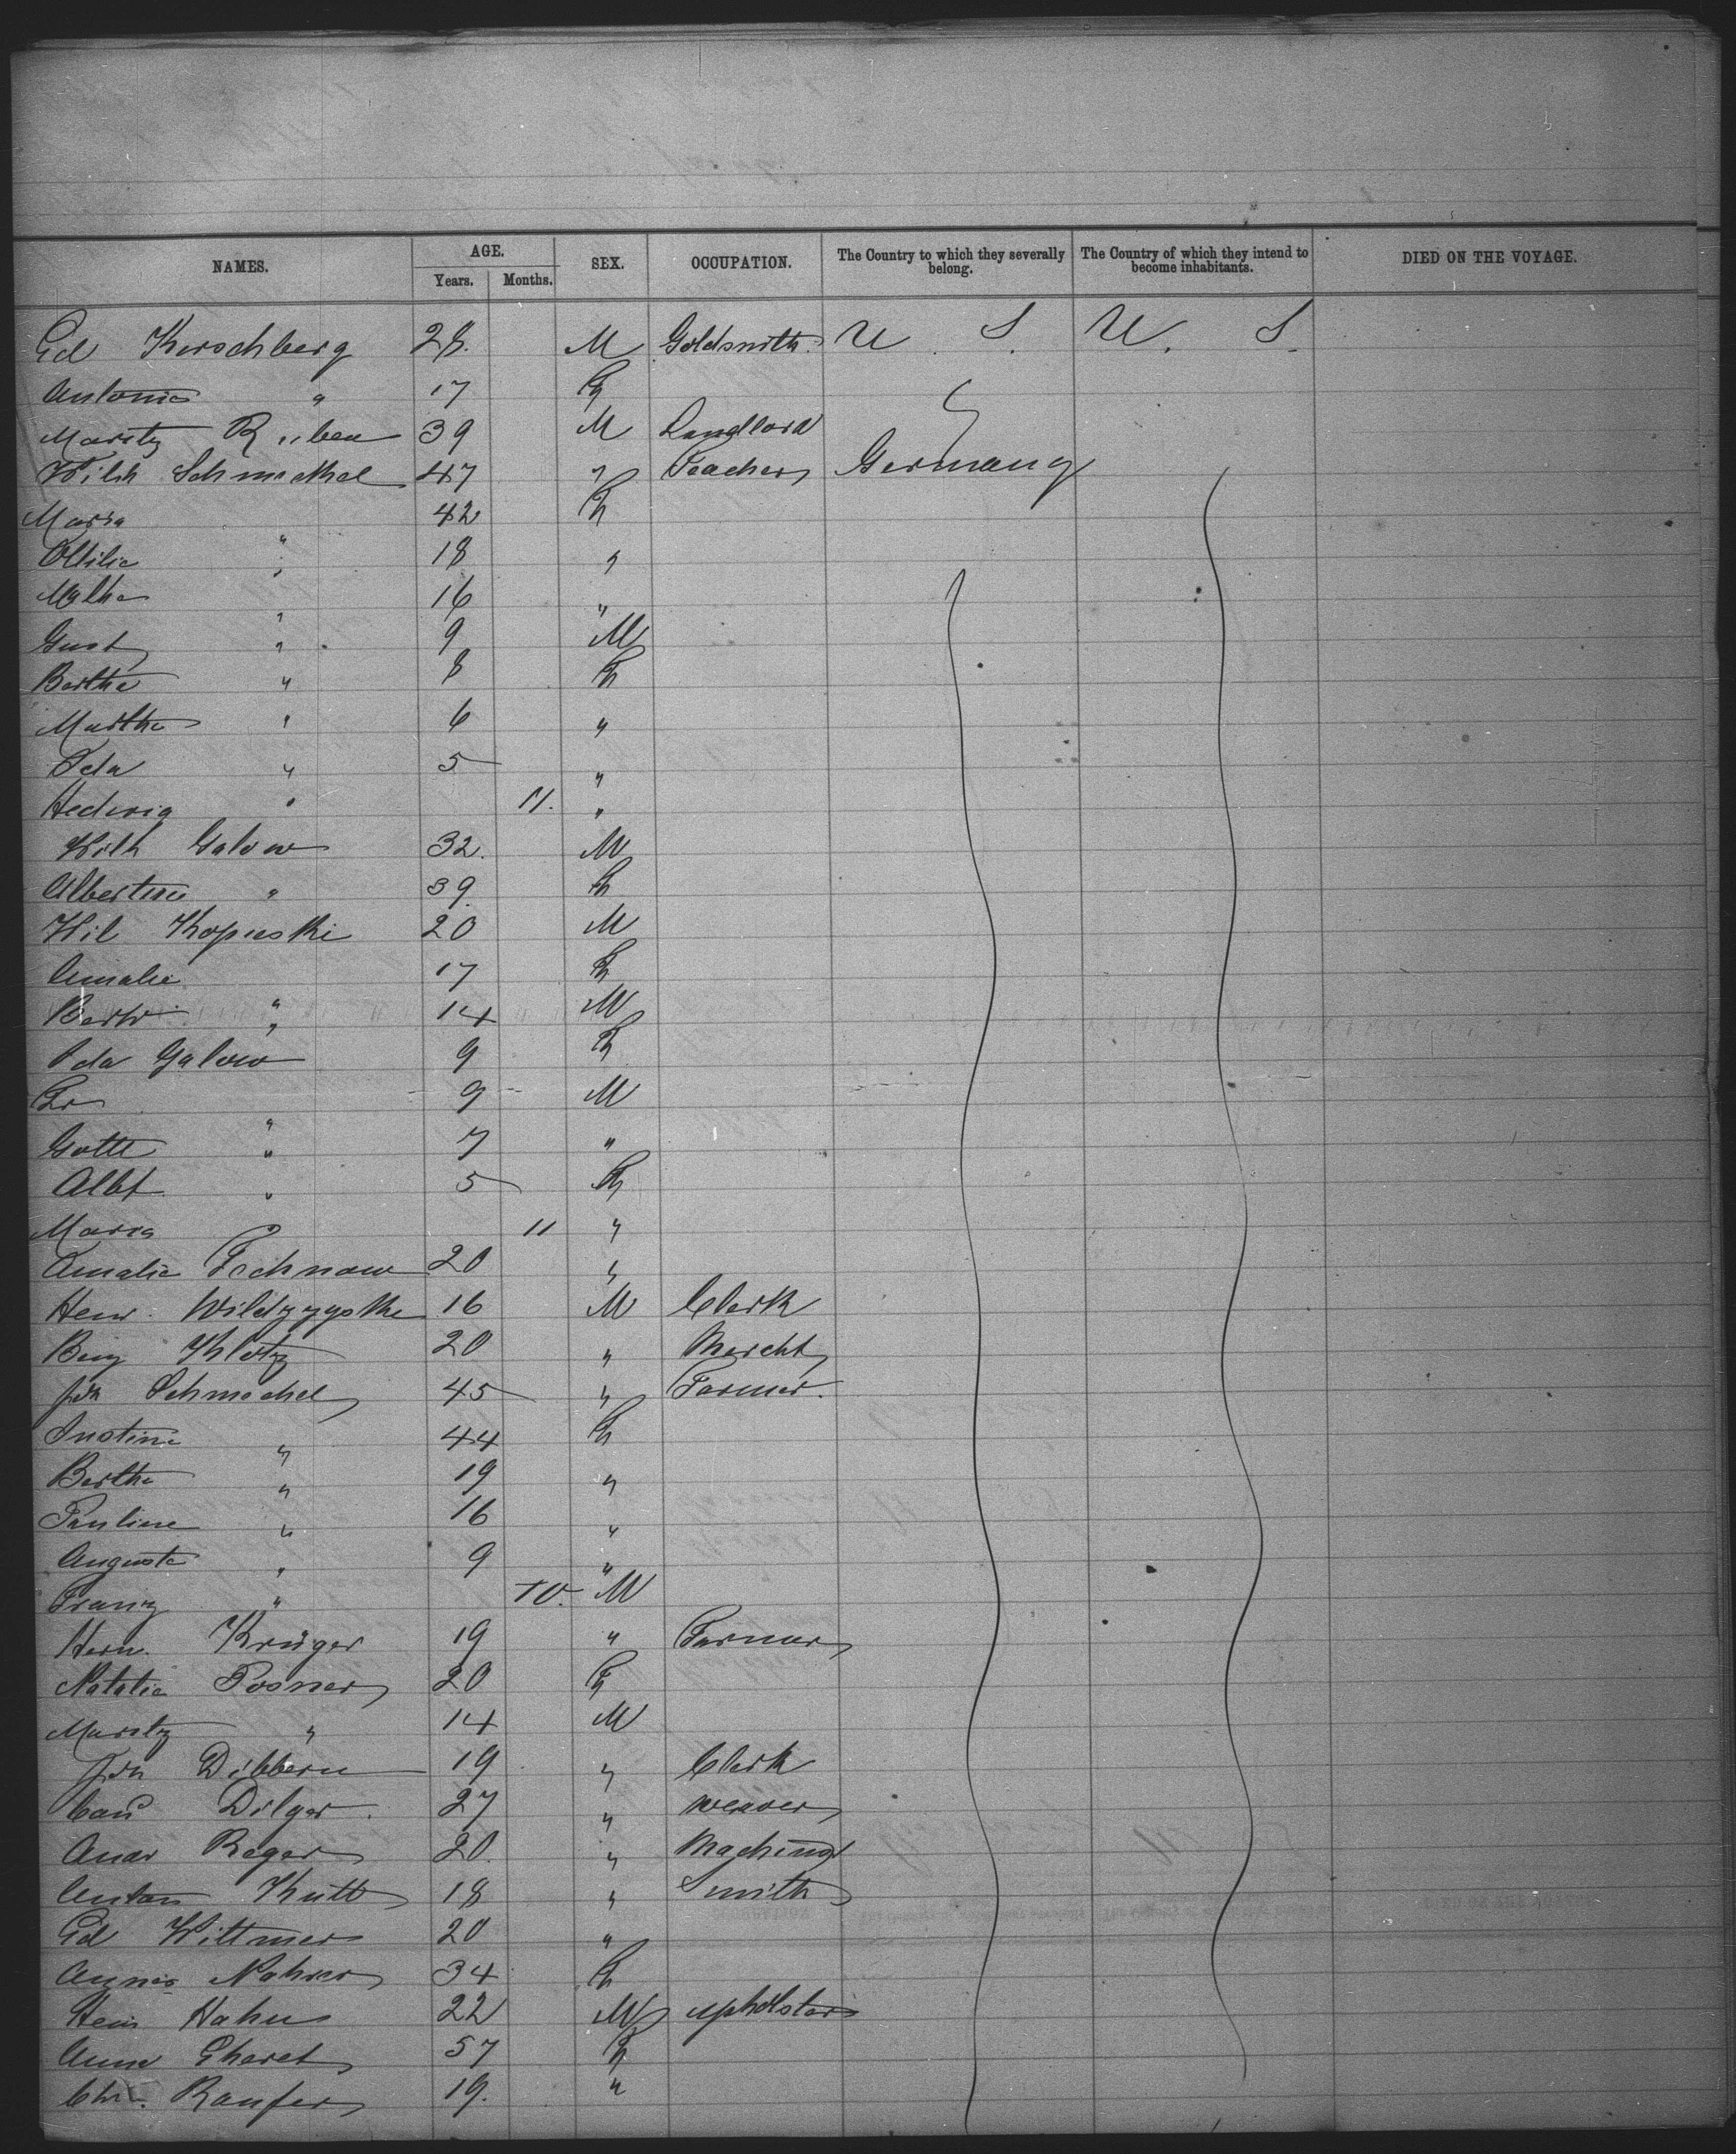 NAMES. AGE. Years. Months. SEX. OCCUPATION. The Country to which they severally belong. The Country of which they intend to become inhabitants. DIED ON THE VOYAGE.
Ed Kerschberg 28. M Goldsmith. U. S. U. S.
Antonia " 17
Moritz Ruben 39 M Landlord
Wilh Schmeckel 47 " Teacher Germany
Maria " 42
Ottilie " 18 "
16 "
Gust " 9 M
Bertha " 8
Martha " 6 "
Ida " 5 "
Hedwig " 11. "
Wilh Galow 32. M
Albertine " 39.
Wil Kopieski 20 M
Amalie " 17
" 14 M
Ida Galow 9
Fr " 9 M
Gottl " 7 "
Albt " 5
Maria 11 "
Amalie Fechnow 20 "
Henr. 16 M Clerk
Benj Klotz 20 " Mercht
Joh Schmechel 45 " Farmer.
Justine " 44
Bertha " 19 "
Pauline " 16 "
Auguste " 9 "
Franz " 10. M
Herm. Krüger 19 " Farmer
Natalie Posner 20
Moritz " 14 M
Joh Dibbern 19 " Clerk
Dilger. 27 " weaver
Reger 20. " Machinist
Anton Kutt 18 " Smith
Ed Wittmer 20 "
Agnes Nahrer 34
Hein Hahn 22 M upholster
Anna Eheret 57
Chr. Raufer 19. "